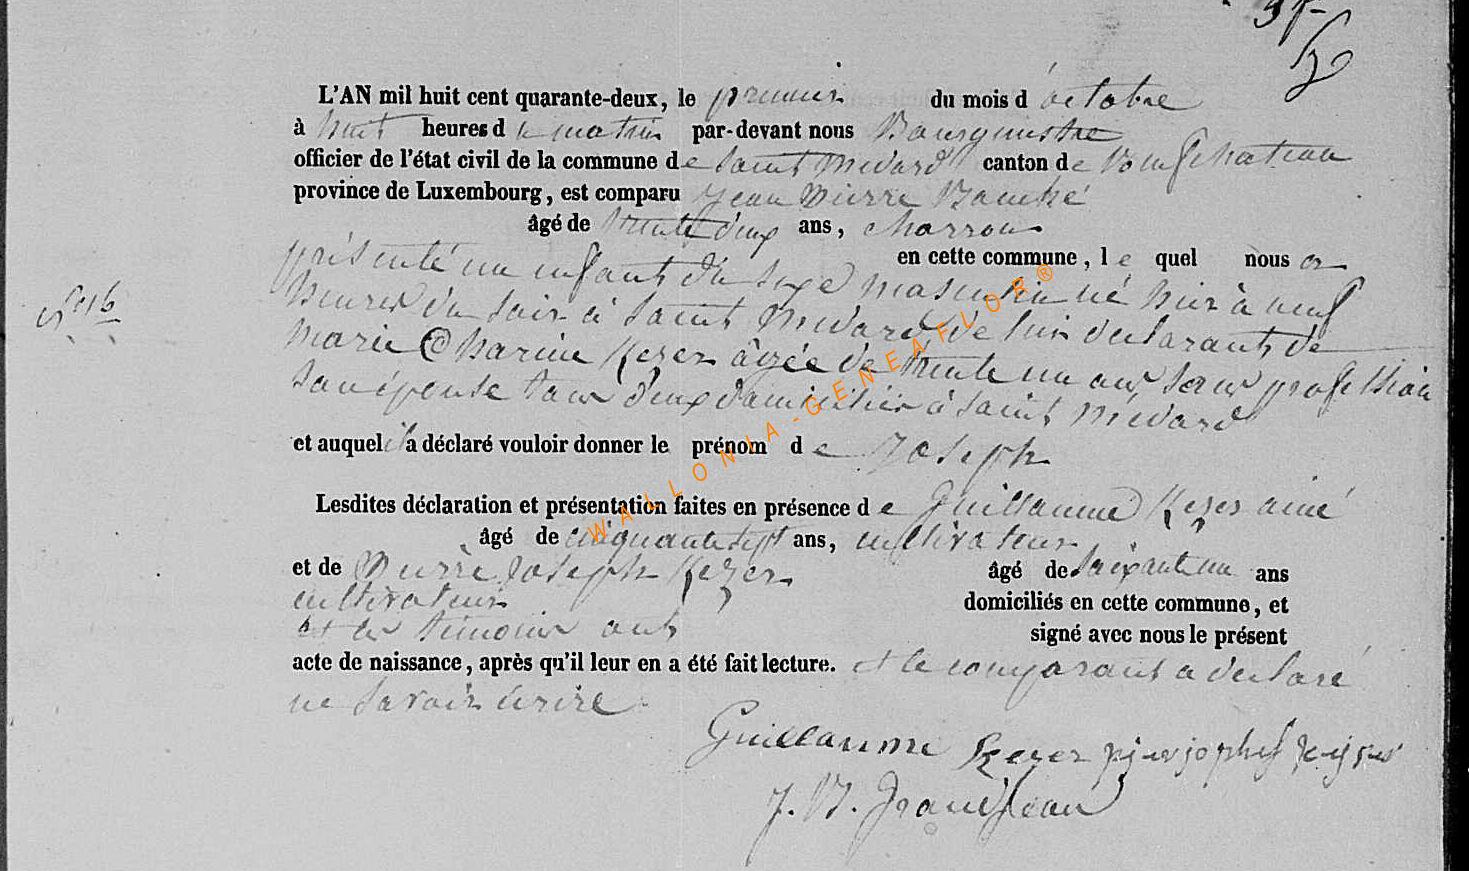 37
L'AN mil huit cent quarante-deux, le premier du mois d'octobre
à huit heures du matin par-devant nous Bourgmestre
officier de l'état civil de la commune de Saint Médard canton de Neufchateau
province de Luxembourg, est comparu Jean Pierre
âgé de trente deux ans, charron
en cette commune, lequel nous a
présenté un enfant du sexe masculin né hier à neuf
heures du soir à Saint Médard, de lui déclarant, de
Marie Kezer âgée de trente un ans sans profession
son épouse tous deux domiciliés à Saint Médard
et auquel il a déclaré vouloir donner le prénom de Joseph
Lesdites déclaration et présentation faites en présence de Guillaume Kezer ainé
âgé de cinquante sept ans, cultivateur
et de Pierre Joseph Kezer âgé de soixante un ans
cultivateur domiciliés en cette commune, et
et les témoins ont signé avec nous le présent
acte de naissance, après qu'il leur en a été fait lecture. et le comparant a déclaré
ne savoir écrire.
Guillaume Kezer
J. B. Grandjean
WALLONIA-GENEAFLOR®